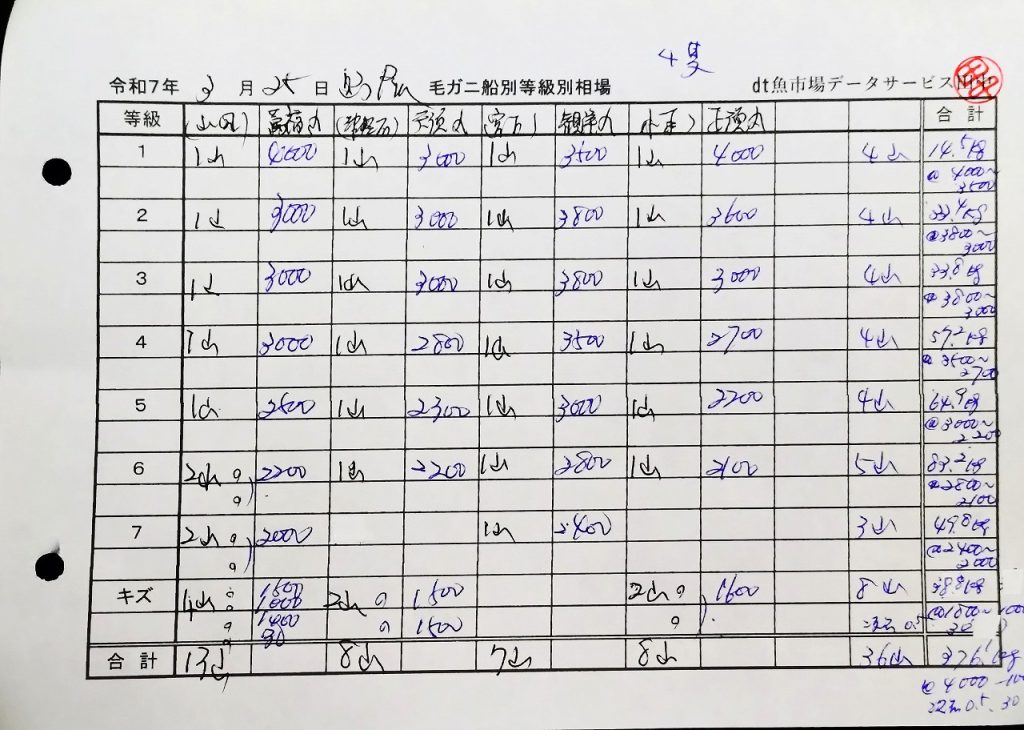 4隻
令和7年 3月 25日 毛ガニ船別等級別相場 dt魚市場データサービス
等級 丸 丸 丸 丸 合計
1 1山 4000 1山 3000 1山 3500 1山 4000 4山 14.5kg
@4000~3500
2 1山 3000 1山 3000 1山 3800 1山 3600 4山 33.4kg
@3800~3000
3 1山 3000 1山 3000 1山 3800 1山 3000 4山 33.8kg
@3800~3000
4 1山 3000 1山 2800 1山 3500 1山 2700 4山 57.2kg
@3500~2700
5 1山 2500 1山 2300 1山 3000 1山 2200 4山 64.9kg
@3000~2200
6 2山 2200 1山 2200 1山 2800 1山 2100 5山 83.2kg
@2800~2100
7 2山 2000 1山 2400 3山 49.8kg
@2400~2000
キズ 4山 1000 2山 1500 2山 1600 8山 38.8kg
1400 1500
合計 13山 8山 7山 8山 36山 376.1kg
@4000